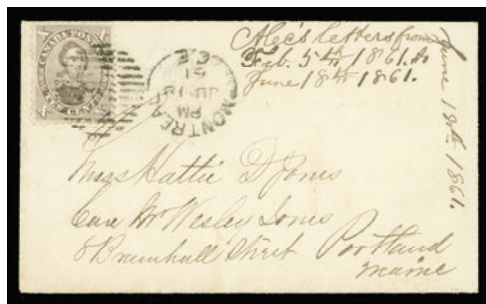 CANADA POSTAGE
TEN CENTS
MONTREAL
PM
JU 18
61
C.E
Alec's letters from
Feb. 5th 1861. to
June 18th 1861.
June 18th 1861.
Miss Hattie D Jones
Care Mr Wesley Jones
8 Bramhall Street Portland
Maine